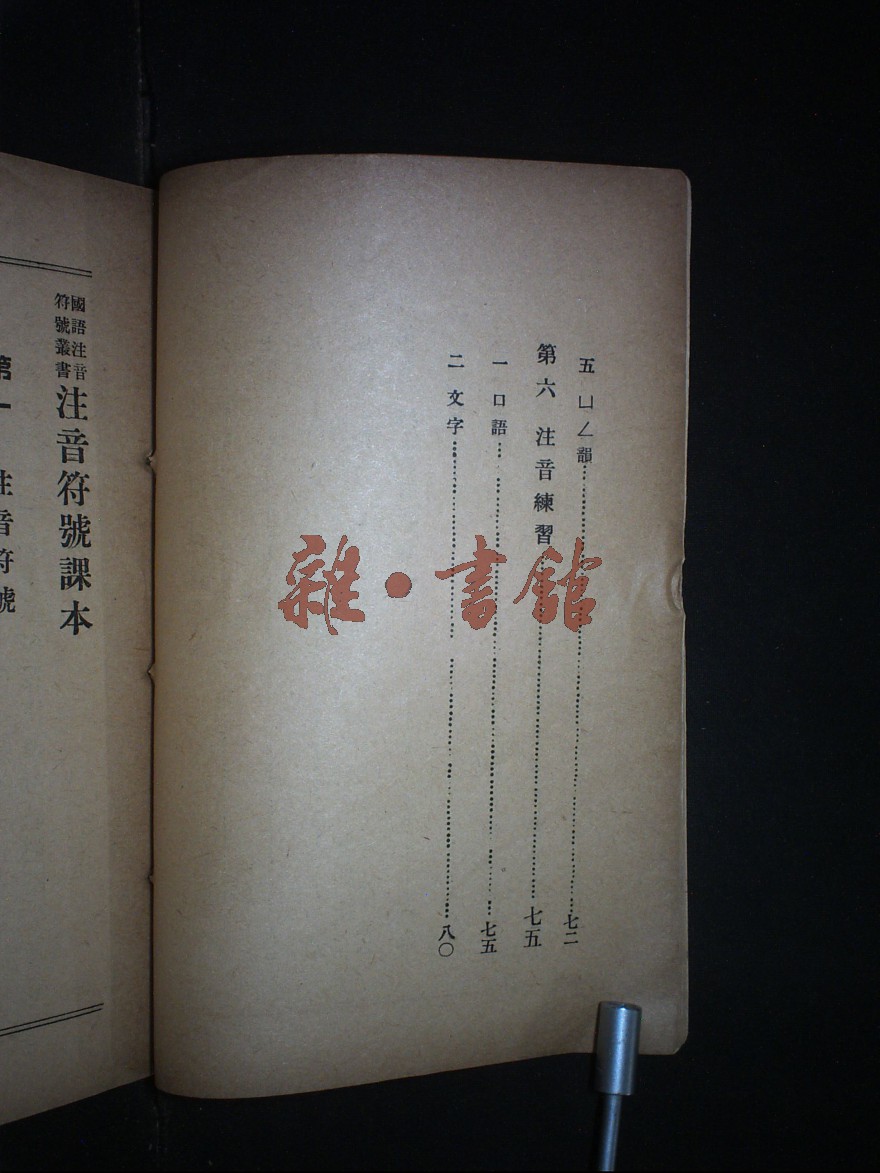 五 ㄩㄥ韻……七二
第六 注音練習……七五
一 口語……七五
二 文字……八〇
雜·書館
國語注音
符號叢書
注音符號課本
第一 注音符號